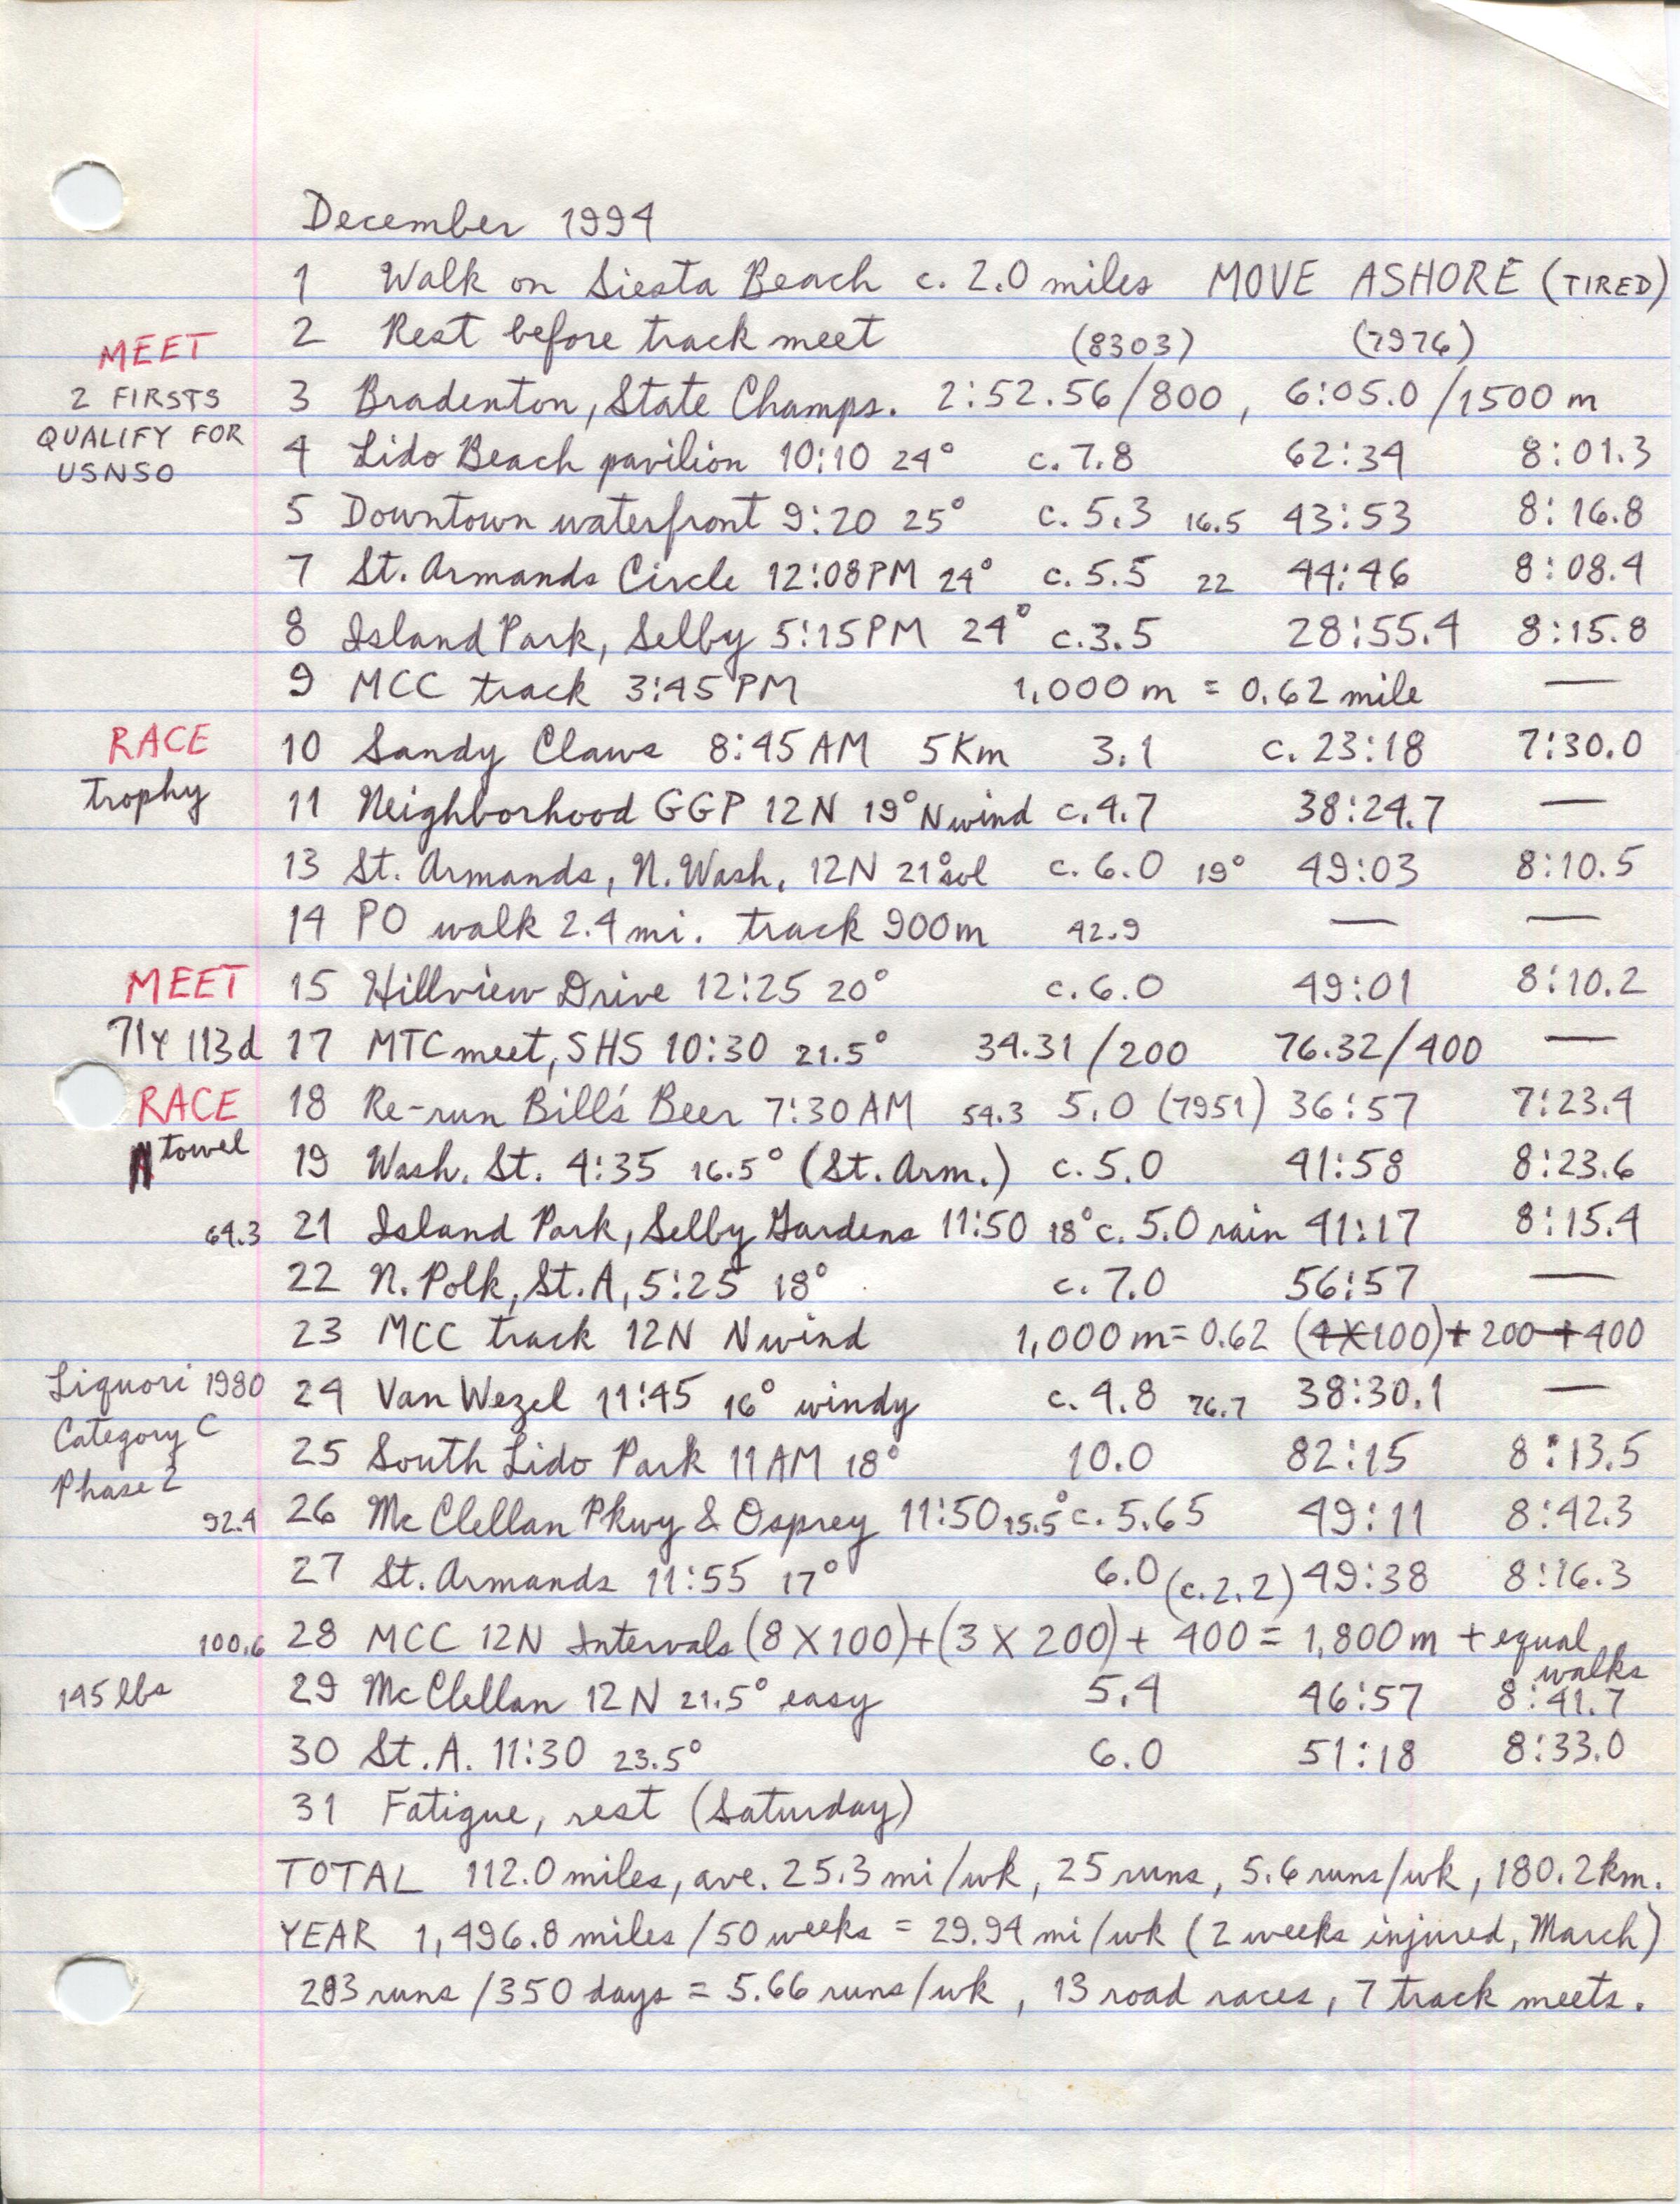 December 1994
1 Walk on Siesta Beach c. 2.0 miles MOVE ASHORE (TIRED)
2 Rest before track meet (8303) (7976)
MEET
2 FIRSTS 3 Bradenton, State Champs. 2:52.56/800, 6:05.0/1500 m
QUALIFY FOR
USNSO 4 Lido Beach pavilion 10:10 24° c. 7.8 62:34 8:01.3
5 Downtown waterfront 9:20 25° c. 5.3 16.5 43:53 8:16.8
7 St. Armands Circle 12:08PM 24° c. 5.5 22 44:46 8:08.4
8 Island Park, Selby 5:15PM 24° c. 3.5 28:55.4 8:15.8
9 MCC track 3:45PM 1,000 m = 0.62 mile —
RACE 10 Sandy Claws 8:45AM 5Km 3.1 c. 23:18 7:30.0
trophy 11 Neighborhood GGP 12N 19° N wind c. 4.7 38:24.7 —
13 St. Armands, N. Wash, 12N 21° sol c. 6.0 19° 49:03 8:10.5
14 PO walk 2.4 mi. track 900m 42.9 — —
MEET 15 Hillview Drive 12:25 20° c. 6.0 49:01 8:10.2
71y 113d 17 MTC meet, SHS 10:30 21.5° 34.31/200 76.32/400 —
RACE 18 Re-run Bill's Beer 7:30AM 54.3 5.0 (7951) 36:57 7:23.4
towel 19 Wash. St. 4:35 16.5° (St. Arm.) c. 5.0 41:58 8:23.6
64.3 21 Island Park, Selby Gardens 11:50 18° c. 5.0 rain 41:17 8:15.4
22 N. Polk, St. A, 5:25 18° c. 7.0 56:57 —
23 MCC track 12N N wind 1,000 m = 0.62 (4X100)+200+400
Liquori 1980 24 Van Wezel 11:45 16° windy c. 4.8 76.7 38:30.1 —
Category C
Phase 2 25 South Lido Park 11AM 18° 10.0 82:15 8:13.5
92.4 26 McClellan Pkwy & Osprey 11:50 15.5° c. 5.65 49:11 8:42.3
27 St. Armands 11:55 17° 6.0 (c. 2.2) 49:38 8:16.3
100.6 28 MCC 12N Intervals (8 X 100)+(3 X 200)+ 400 = 1,800 m + equal walks
145 lbs 29 McClellan 12N 21.5° easy 5.4 46:57 8:41.7
30 St. A. 11:30 23.5° 6.0 51:18 8:33.0
31 Fatigue, rest (Saturday)
TOTAL 112.0 miles, ave. 25.3 mi/wk, 25 runs, 5.6 runs/wk, 180.2 km.
YEAR 1,496.8 miles/50 weeks = 29.94 mi/wk (2 weeks injured, March)
283 runs/350 days = 5.66 runs/wk, 13 road races, 7 track meets.